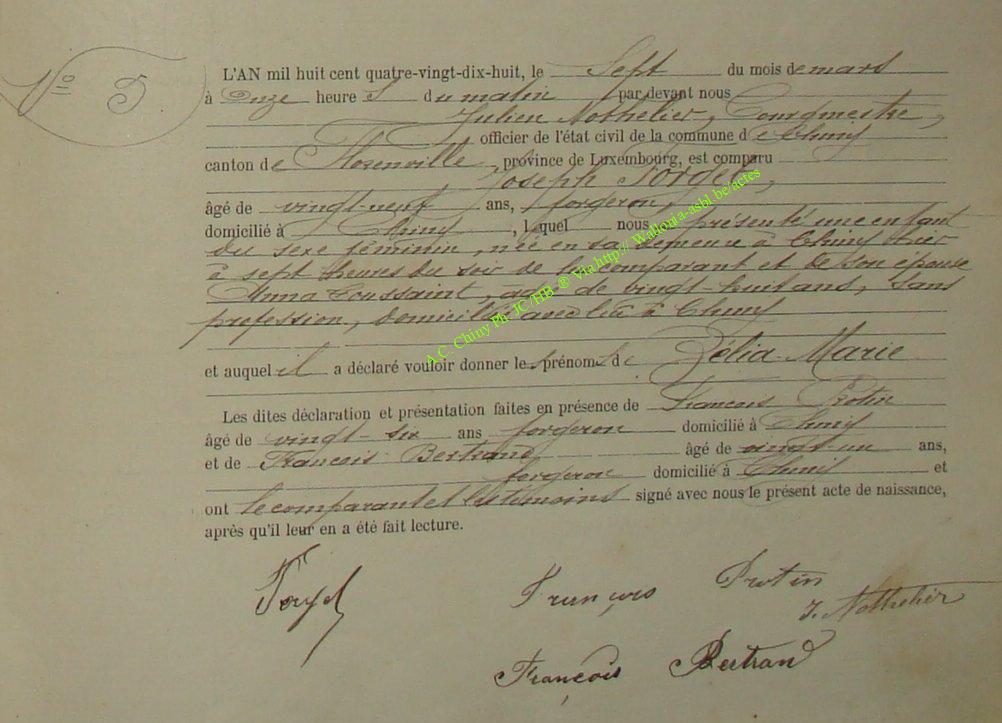 N° 5
L'AN mil huit cent quatre-vingt-dix-huit, le Sept du mois de mars
à Onze heures du matin par devant nous
Julien Nothelier, Bourgmestre,
officier de l'état civil de la commune de Chiny
canton de Florenville, province de Luxembourg, est comparu
Joseph Forget,
âgé de vingt-neuf ans, forgeron,
domicilié à Chiny, lequel nous a présenté une enfant
du sexe féminin, née en sa demeure à Chiny hier
à sept heures du soir de lui comparant et de son épouse
Anna Toussaint, âgée de vingt-huit ans, sans
profession, domiciliée avec lui à Chiny
et auquel il a déclaré vouloir donner les prénoms de Zélia Marie
Les dites déclaration et présentation faites en présence de François Protin
âgé de vingt-six ans forgeron domicilié à Chiny
et de François Bertrand âgé de vingt-un ans,
forgeron domicilié à Chiny et
ont le comparant et les témoins signé avec nous le présent acte de naissance,
après qu'il leur en a été fait lecture.
Forget François Protin
J. Nothelier
François Bertrand
A.C. Chiny Ph. JC/HB ® Via http:// Wallonia-asbl.be/actes